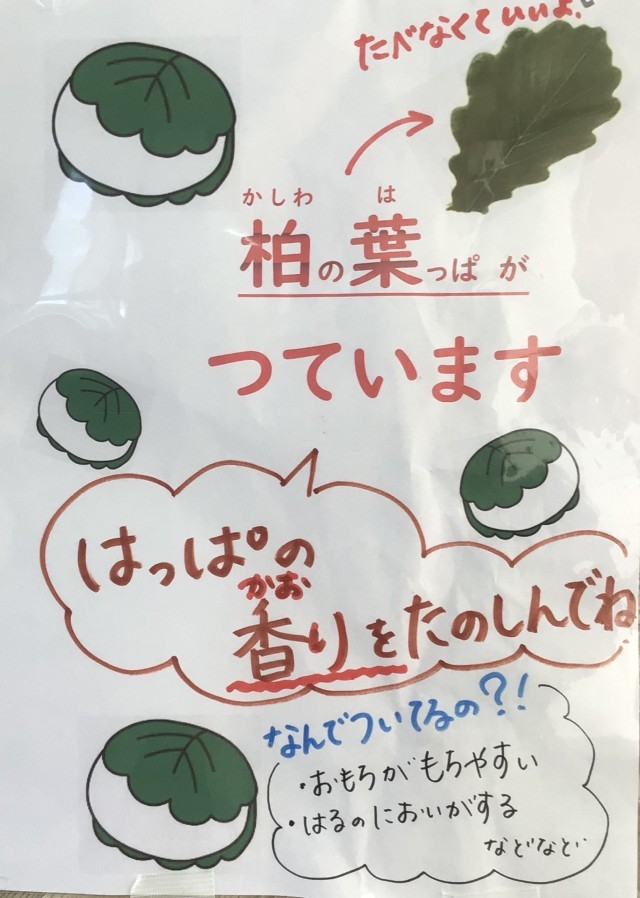 たべなくていいよ。
かしわ は
柏の葉っぱ が
つています
はっぱの
かお
香りをたのしんでね
なんでついてるの?!
・おもちがもちやすい
・はるのにおいがする
などなど